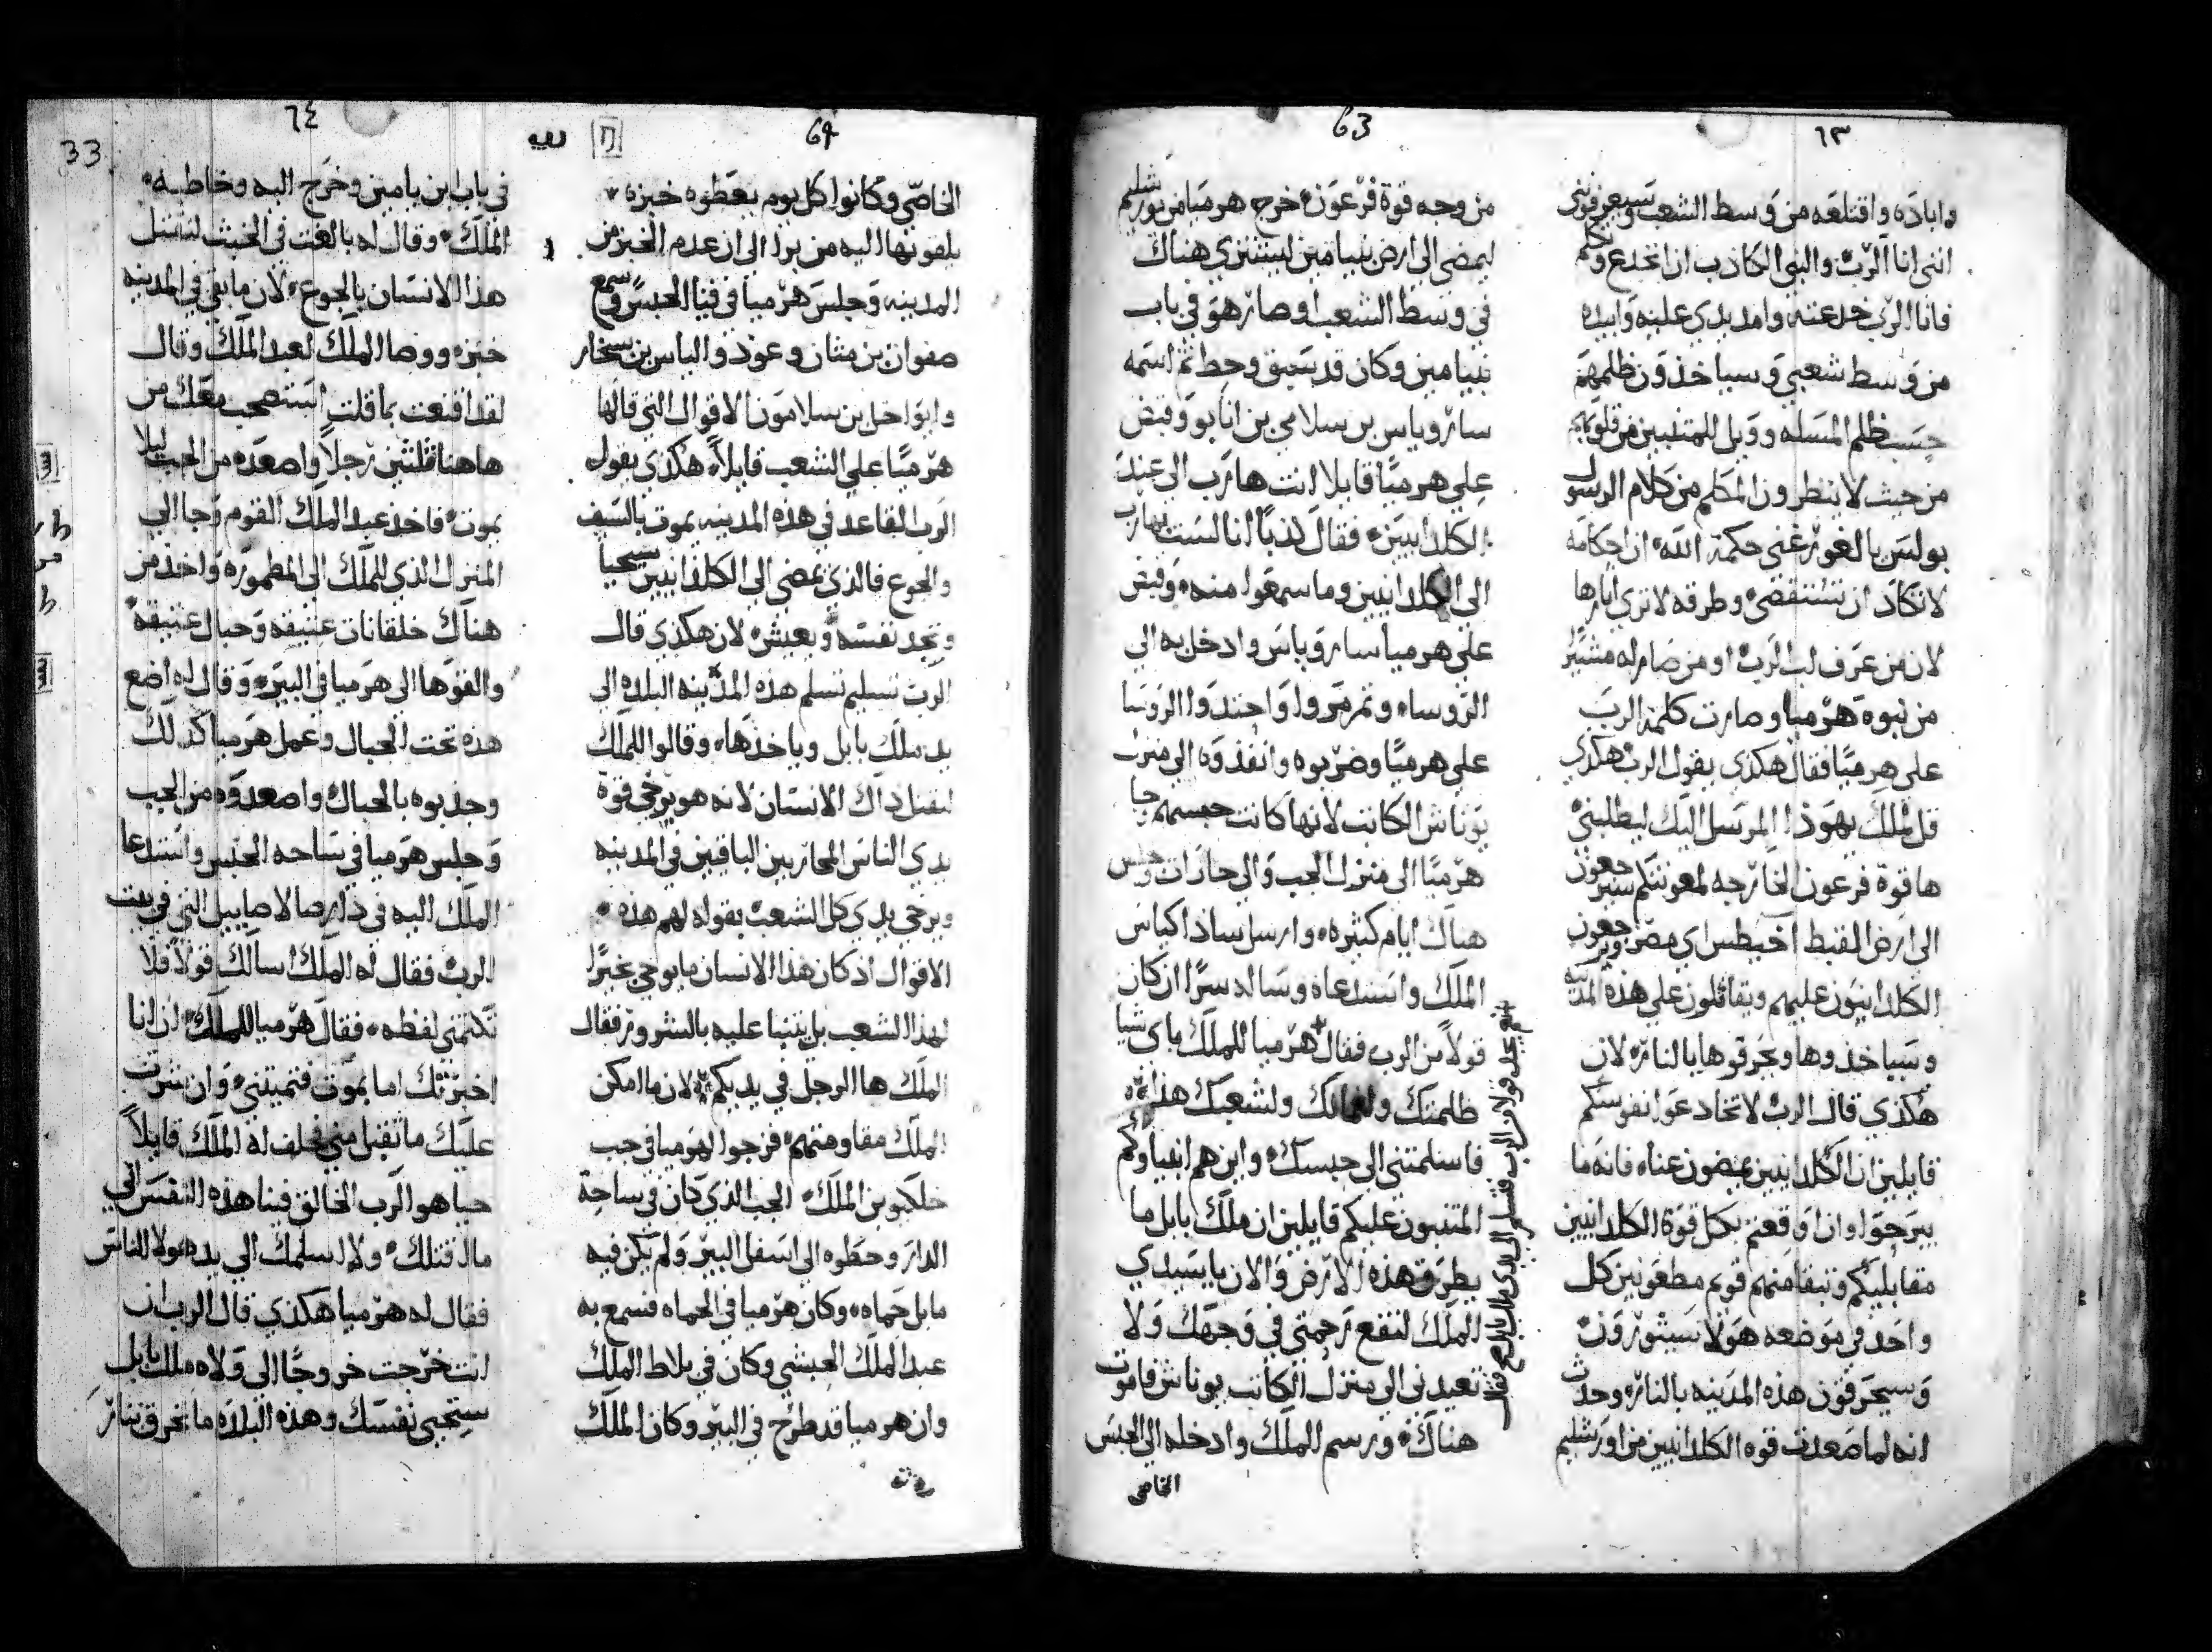 63
٦٣
واباده واقتلعه من وسط الشعب وسيعرفونني
انني انا الرب والنبي الكاذب ان انخدع وتكلم
فانا الرب خدعته وامد يدي عليه وابيده
من وسط شعبي وسياخذون ظلمهم
حسب ظلم المسله وويل للمتنبيين من قلوبهم
من حيث لا ينظرون المكلم من كلام الرسول
بولس بالغور غني حكمة الله ان احكامه
لا تكاد ان تستقصي وطرقه لا تري اثارها
لان من عرف لب الرب او من صار له مشير
من نبوة هرميا وصارت كلمة الرب
علي هرميا فقال هكذي يقول الرب هكذي
قل لملك يهوذا المرسل اليك ليطلبني
ها قوة فرعون الخارجه لمعونتكم سيرجعون
الي ارض القبط اخيطس اي مصر ويرجعون
الكلدانيون عليهم ويقاتلون علي هذه المدينه
وسياخذوها ويحرقوها بالنار لان
هكذي قال الرب لا تخادعوا نفوسكم
قايلين ان الكلدانيين يمضون عناه فانه ما
يبرحوا وان اوقعتم بكل قوة الكلدانيين
مقابليكم وتبقا منهم قوم مطعونين كل
واحد في موضعه هولا سيثورون
وسيحرقون هذه المدينه بالنار وحدث
انه لما صعدت قوه الكلدانيين من اورشليم
من وجه قوة فرعون خرج هرميا من يورشليم
ليمضي الي ارض بنيامين ليشتري هناك
في وسط الشعب وصار هو في باب
بنيامين وكان قد سبق وحط ثم اسمه
سارو ياس بن سلامي بن انانيو وقبض
علي هرميا قايلا انت هارب الي عند
الكلدانيين فقال كذبا انا لست بهارب
الي الكلدانيين وما سمعوا منه وقبض
علي هرميا سارو ياس وادخل به الي
الروساء وتمرمروا واحتدوا الروسا
علي هرميا وضربوه وانفذوه الي منزل
يوناثان الكاتب لانها كانت حبسهم جا
هرميا الي منزل الجب والي حارات وجلس
هناك ايام كثيره وارسل ساذاكياس
الملك واستدعاه وساله سرا ان كان
قولا من الرب فقال هرميا للملك باي شيا
ظلمتك ولغلمانك ولشعبك هذا
فاسلمتني الي حبسك واين هم انبياوكم
المتنبون عليكم قايلين ان ملك بابل ما
يطرق هذه الارض والان يا سيدي
الملك لتقع رحمتي في وجهك ولا
تعيدني الي منزل الكاتب يوناثان فاموت
هناك ورسم الملك وادخله الي الحبس
الخاص
64
٦٤
33
الخاصي وكانوا كل يوم يعطوه خبزه
يلقونها اليه من برا الي ان عدم الخبز من
المدينه وجلس هرميا في فنا الحبس وسمع
صفوان بن مثان وعوذ والياس بن سخار
وابواخل بن سلامون الاقوال التي قالها
هرميا علي الشعب قايلا هكذي يقول
الرب القاعد في هذه المدينه يموت بالسيف
والجوع فالذي يمضي الي الكلدانيين سيحيا
وتجد نفسه ويعيش لان هكذي قال
الرب تسليم تسلم هذه المدينه البلده الي
يد ملك بابل وياخذها وقالوا للملك
لنقتل ذاك الانسان لانه هو يرخي قوة
يدي الناس المحاربين الباقيين في المدينه
ويرخي يدي كل الشعب بقوله لهم هذه
الاقوال اذ كان هذا الانسان ما يوحي بخيرا
لهذا الشعب بل يتنبا عليه بالشرور فقال
الملك ها الرجل في يديكم لان ما امكن
الملك مقاومتهم فزجوا لهرميا في جب
خلكيو بن الملك الجب الذي كان في ساحة
الدار وحطوه الي اسفل البير ولم يكن فيه
ما بل حماه وكان هرميا في الحماه فسمع به
عبد الملك الحبشي وكان في بلاط الملك
وان هرميا قد طرح في البير وكان الملك
في باب ابن يامين وخرج اليه وخاطبه
الملك وقال له بالغت في الخبث لتقتل
هذا الانسان بالجوع لان ما بقي في المدينه
خبزه ووصا الملك لعبد الملك وقال
لقد اقنعت بما قلت استصحب معك من
هاهنا ثلثين رجلا واصعده من الجب ليلا
يموت فاخذ عبد الملك القوم وجا الي
المنزل الذي للملك الي المطموره واخذ من
هناك خلقانات عتيقه وحبال عتيقة
والقوها الي هرميا في البير وقال له اضع
هذه تحت الحبال وعمل هرميا كذلك
وجذبوه بالحبال واصعدوه من الجب
وجلس هرميا في ساحه الحبس واستدعا
الملك اليه في دار صالاصابيل التي في بيت
الرب فقال له الملك اسالك قولا فلا
تكتمني لفظه فقال هرميا للملك ان انا
اخبرتك اما بموت فتميتني وان شرت
عليك ما تقبل مني فحلف له الملك قايلا
حيا هو الرب الخالق فينا هذه النفس اني
ما لا قتلك ولا اسلمك الي يد هولا الناس
فقال له هرميا هكذي قال الرب ان
انت خرجت خروجا الي ولاه ملك بابل
ستحيي نفسك وهذه البلده ما تحرق بنار